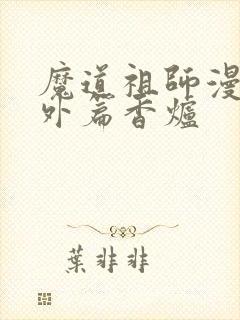 魔道祖師漫
外篇香爐
葉非非